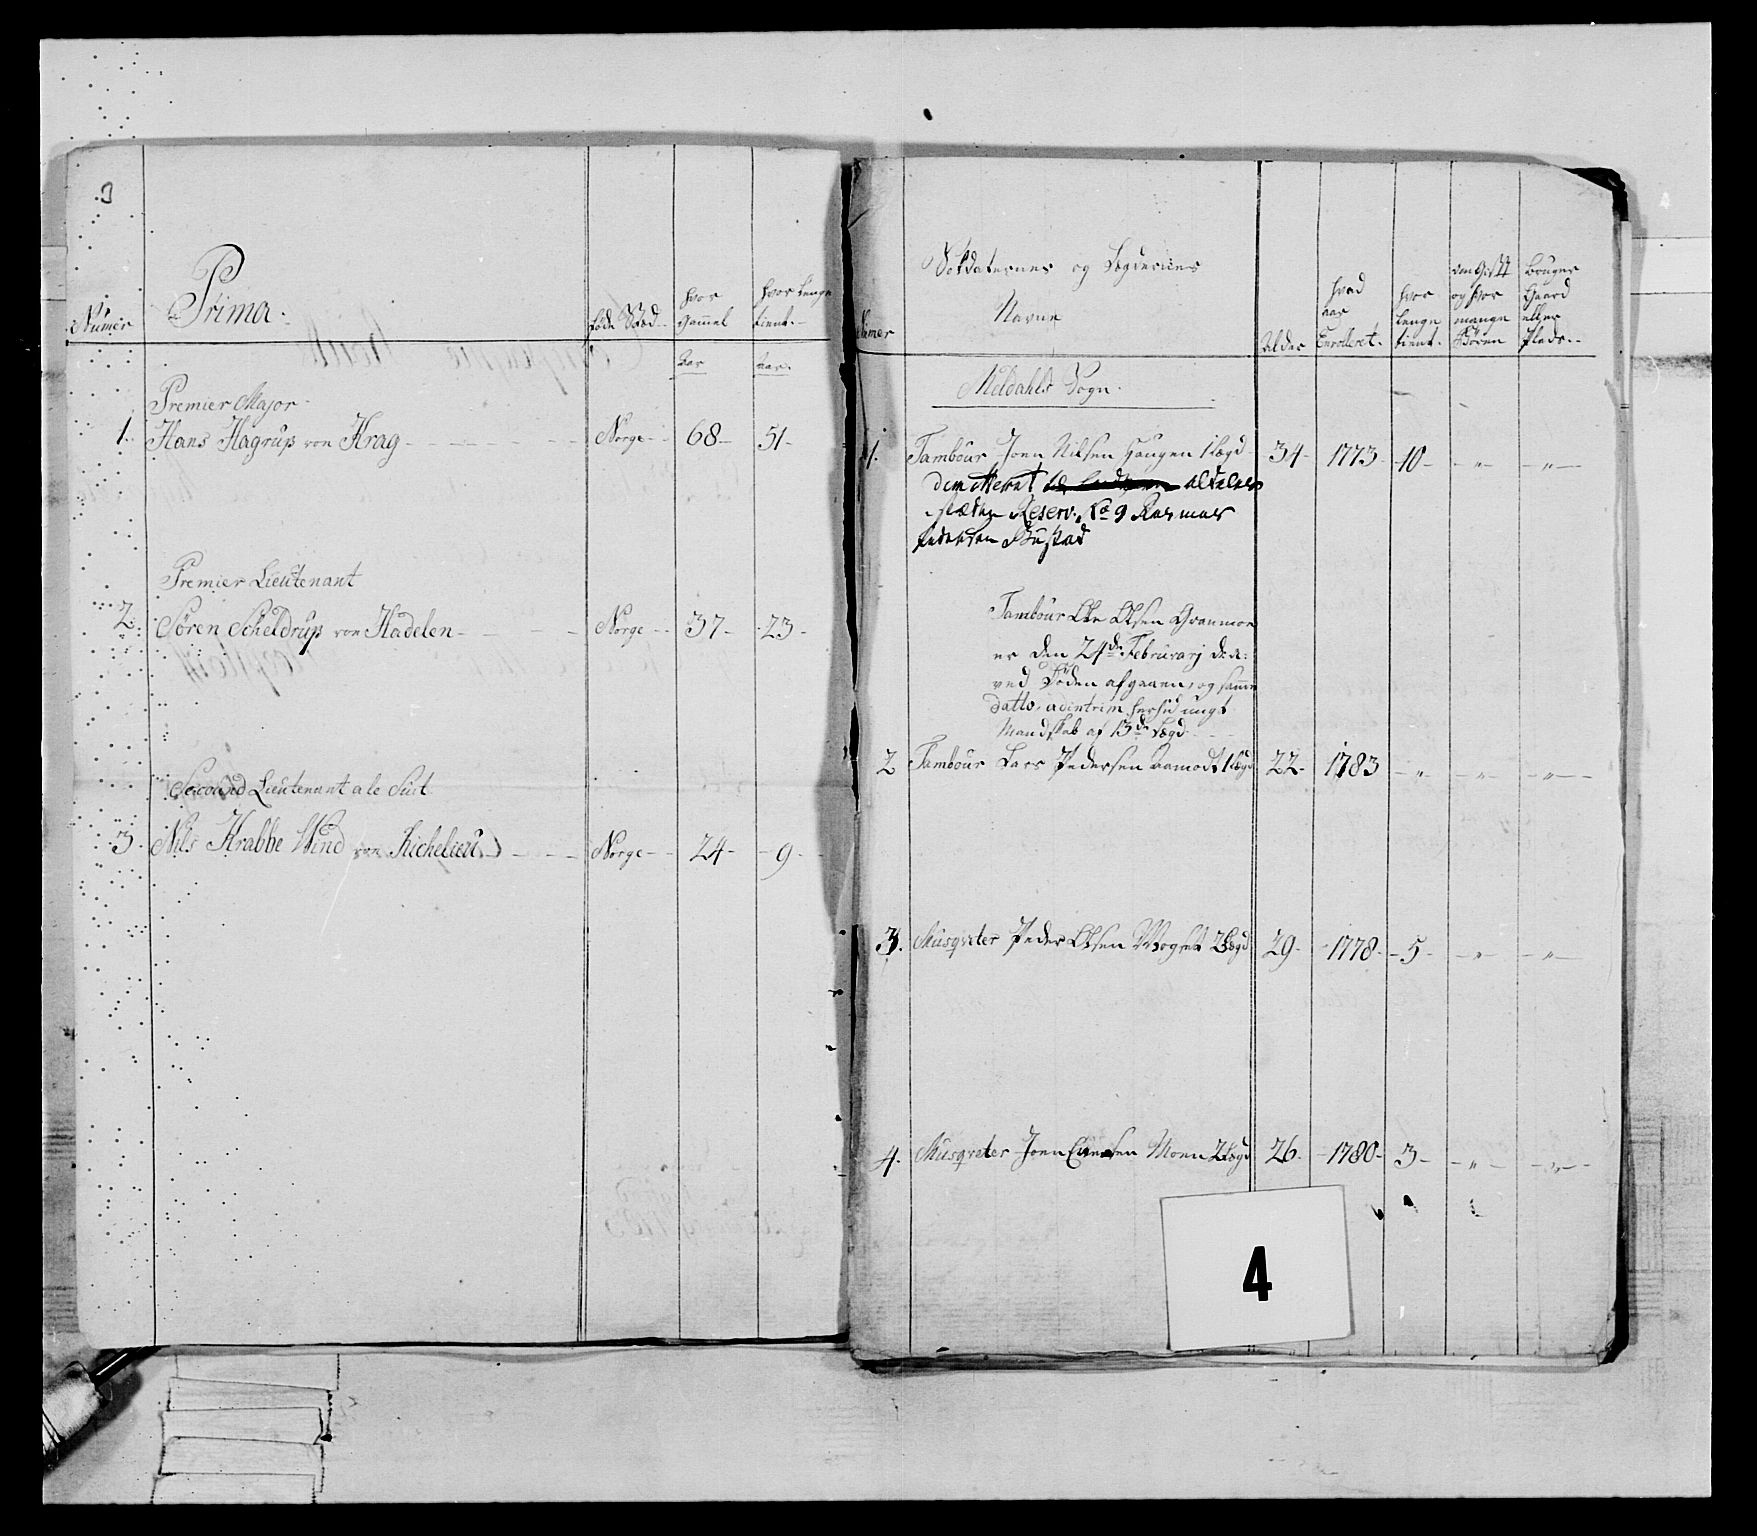 Numer
Prima.
føde Stæd
hvor
Gammel
hvor lenge
tient.
Aar
Aar.
Premier Major
1. Hans Hagrup von Krag Norge 68 51
Premier Lieutenant
2. Søren Scheldrup von Hadelen Norge 37 23
Second Lieutenant a le Suit
3. Nils Krabbe Wind von Richelieu Norge 24 9
Numer
Soldaternes og Lægdernes
Navne
Alder
hvad
aar
Enrolleret.
hvor
lenge
tient.
om Gift
og hvor
mange
Børen
Bruger
Gaard
eller
Plads.
Meldahls Sogn.
1. Tambour Joen Nilsen Haugen 1 Lægd 34 1773 10 " "
dimitteret
stæden Reserv. No 9 Rasmus
Pedersen Bustad
Tambour Ole Olsen Granmoe
er den 24de Februarj d: a:
ved Døden afgaaen, og samme
datto, adintrim
Mandskab af 13de Lægd
2 Tambour Lars Pedersen Aamodt 1 Lægd 22 1783 " " "
3. Musqveter Peder Olsen Mogset 2 Lægd 29 1778 5 " "
4. Musqveter Joen Evensen Moen 2 Lægd 26 1780 3 " "
4